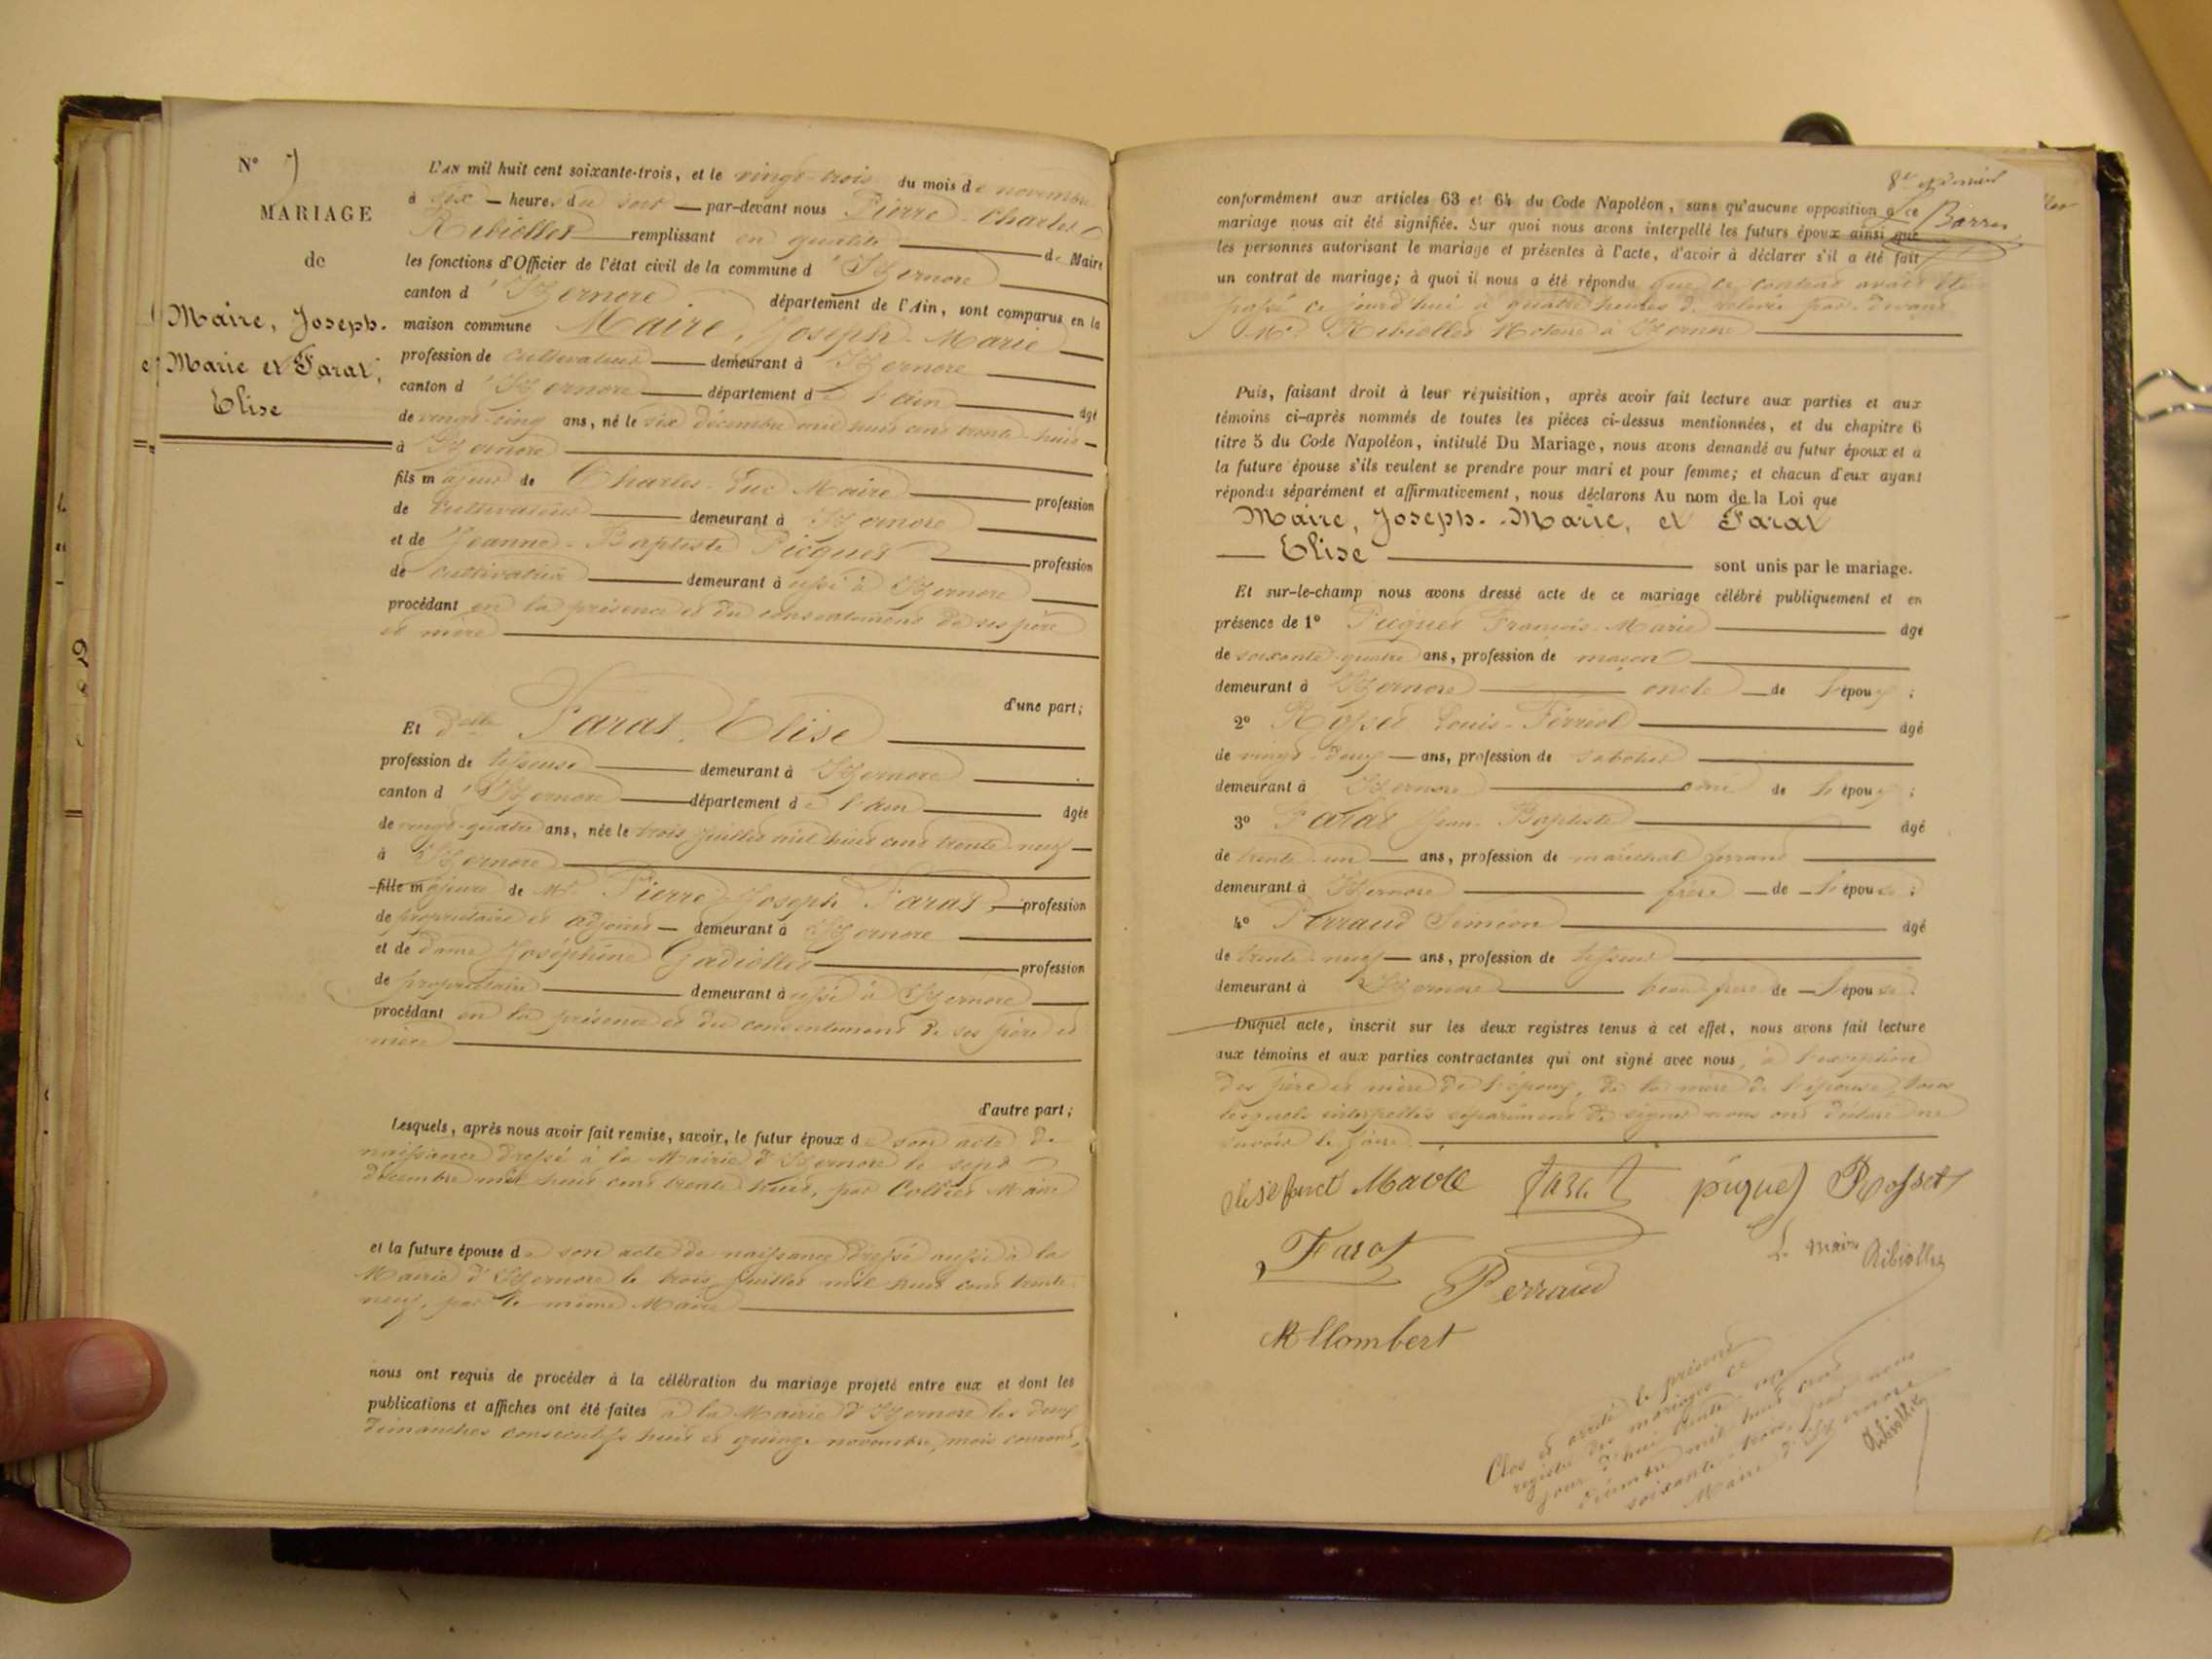 N° 7
MARIAGE
de
Maire, Joseph-
Marie et Farat,
Elise
L'AN mil huit cent soixante-trois, et le vingt-trois du mois de novembre
à six heures du soir par-devant nous Pierre-Charles
Ribiollet remplissant en qualité de Maire
les fonctions d'Officier de l'état civil de la commune d'Izernore
canton d'Izernore département de l'Ain, sont comparus en la
maison commune Maire, Joseph-Marie
profession de cultivateur demeurant à Izernore
canton d'Izernore département de l'Ain âgé
de vingt-cinq ans, né le six décembre mil huit cent trente-huit
à Izernore
fils majeur de Charles-Luc Maire profession
de cultivateur demeurant à Izernore
et de Jeanne-Baptiste Picquet profession
de cultivatrice demeurant à aussi à Izernore
procédant en la présence et du consentement de ses père
et mère
d'une part;
Et Delle Farat, Elise
profession de tisseuse demeurant à Izernore
canton d'Izernore département de l'Ain âgée
de vingt-quatre ans, née le trois juillet mil huit cent trente-neuf
à Izernore
fille majeure de Mr Pierre-Joseph Farat, profession
de propriétaire et adjoint demeurant à Izernore
et de dame Joséphine Gadiollet profession
de propriétaire demeurant à aussi à Izernore
procédant en la présence et du consentement de ses père et
mère
d'autre part;
Lesquels, après nous avoir fait remise, savoir, le futur époux de son acte de
naissance dressé à la Mairie d'Izernore le sept
décembre mil huit cent trente-huit, par Maire
et la future épouse de son acte de naissance dressé aussi à la
Mairie d'Izernore le trois juillet mil huit cent trente-
neuf, par le même Maire
nous ont requis de procéder à la célébration du mariage projeté entre eux et dont les
publications et affiches ont été faites à la Mairie d'Izernore les deux
dimanches consécutifs huit et quinze novembre, mois courant,
8e et dernier
Barras
conformément aux articles 63 et 64 du Code Napoléon, sans qu'aucune opposition à ce
mariage nous ait été signifiée. Sur quoi nous avons interpellé les futurs époux ainsi que
les personnes autorisant le mariage et présentes à l'acte, d'avoir à déclarer s'il a été fait
un contrat de mariage; à quoi il nous a été répondu que le contrat avait été
passé ce jourd'hui à quatre heures de relevée par-devant
Me Ribiollet Notaire à Izernore
Puis, faisant droit à leur réquisition, après avoir fait lecture aux parties et aux
témoins ci-après nommés de toutes les pièces ci-dessus mentionnées, et du chapitre 6
titre 5 du Code Napoléon, intitulé Du Mariage, nous avons demandé au futur époux et à
la future épouse s'ils veulent se prendre pour mari et pour femme; et chacun d'eux ayant
répondu séparément et affirmativement, nous déclarons Au nom de la Loi que
Maire, Joseph-Marie, et Farat
Elise
sont unis par le mariage.
Et sur-le-champ nous avons dressé acte de ce mariage célébré publiquement et en
présence de 1° Picquet François-Marie âgé
de soixante-quatre ans, profession de maçon
demeurant à Izernore oncle de l'époux;
2° Rosset Louis-Ferréol âgé
de vingt-deux ans, profession de sabotier
demeurant à Izernore ami de l'époux;
3° Farat Jean-Baptiste âgé
de trente-un ans, profession de maréchal ferrant
demeurant à Izernore frère de l'épouse;
4° Perraud Siméon âgé
de trente-neuf ans, profession de tisseur
demeurant à Izernore beau-frère de l'épouse.
Duquel acte, inscrit sur les deux registres tenus à cet effet, nous avons fait lecture
aux témoins et aux parties contractantes qui ont signé avec nous, à l'exception
des père et mère de l'époux, de la mère de l'épouse, tous
lesquels interpellés séparément de signer nous ont déclaré ne
savoir le faire.
Maire Farat piquet Rosset
Farat
Le Maire Ribiollet
Perraud
Allombert
Clos et arrêté le présent
registre des mariages ce
jour d'hui trente un
décembre mil huit cent
soixante-trois, par nous
Maire d'Izernore
Ribiollet